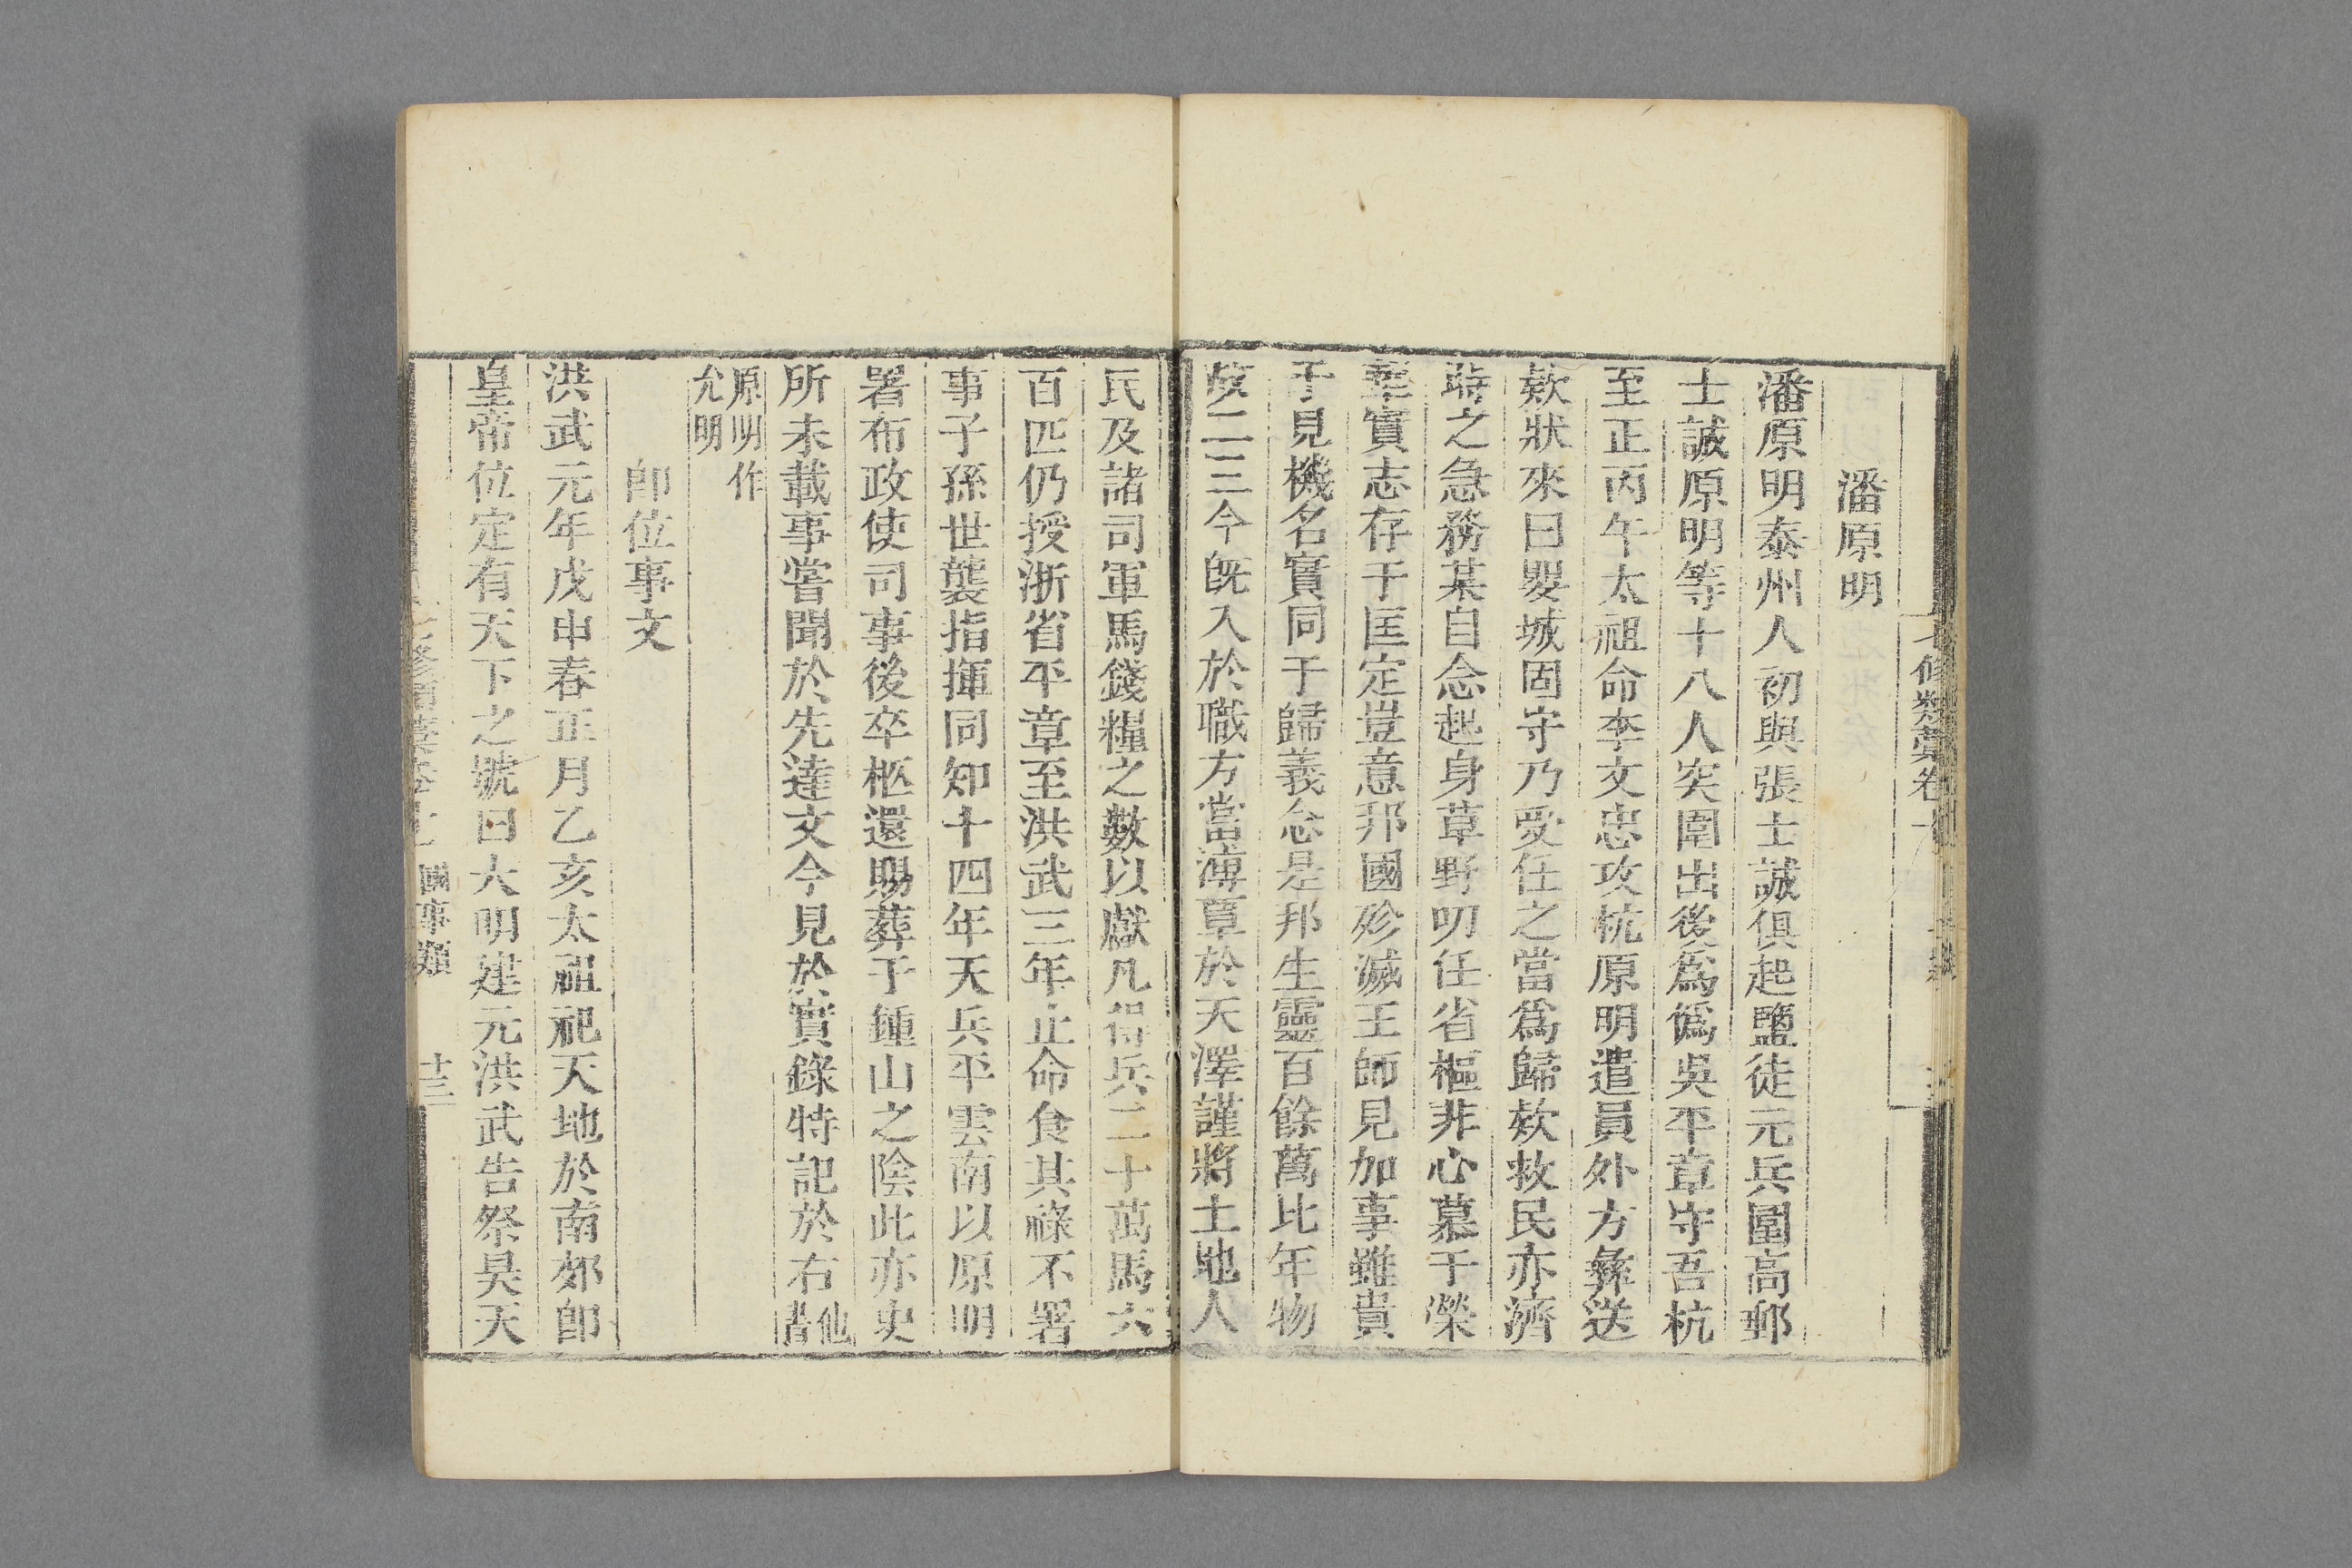 七修類藁卷十
潘原明
潘原明泰州人初與張士誠俱起鹽徒元兵圍高郵
士誠原明等十八人突圍出後爲僞吳平章守吾杭
至正丙午太祖命李文忠攻杭原明遣員外方彝送
欵狀來曰嬰城固守乃受任之當爲歸欵救民亦濟
時之急務某自念起身草野叨任省樞非心慕于榮
寵實志存于匡定豈意邦國殄滅王師見加事雖貴
于見機名實同于歸義念是邦生靈百餘萬比年物
故二三今旣入於職方當溥覃於天澤謹將土地人
民及諸司軍馬錢糧之數以獻凡得兵二十萬馬六
百匹仍授浙省平章至洪武三年止命食其祿不署
事子孫世襲指揮同知十四年天兵平雲南以原明
署布政使司事後卒柩還賜葬于鍾山之陰此亦史
所未載事嘗聞於先達文今見於實錄特記於右他書
原明作允明
卽位事文
洪武元年戊申春正月乙亥太祖祀天地於南郊卽
皇帝位定有天下之號曰大明建元洪武告祭昊天
國事類 十三